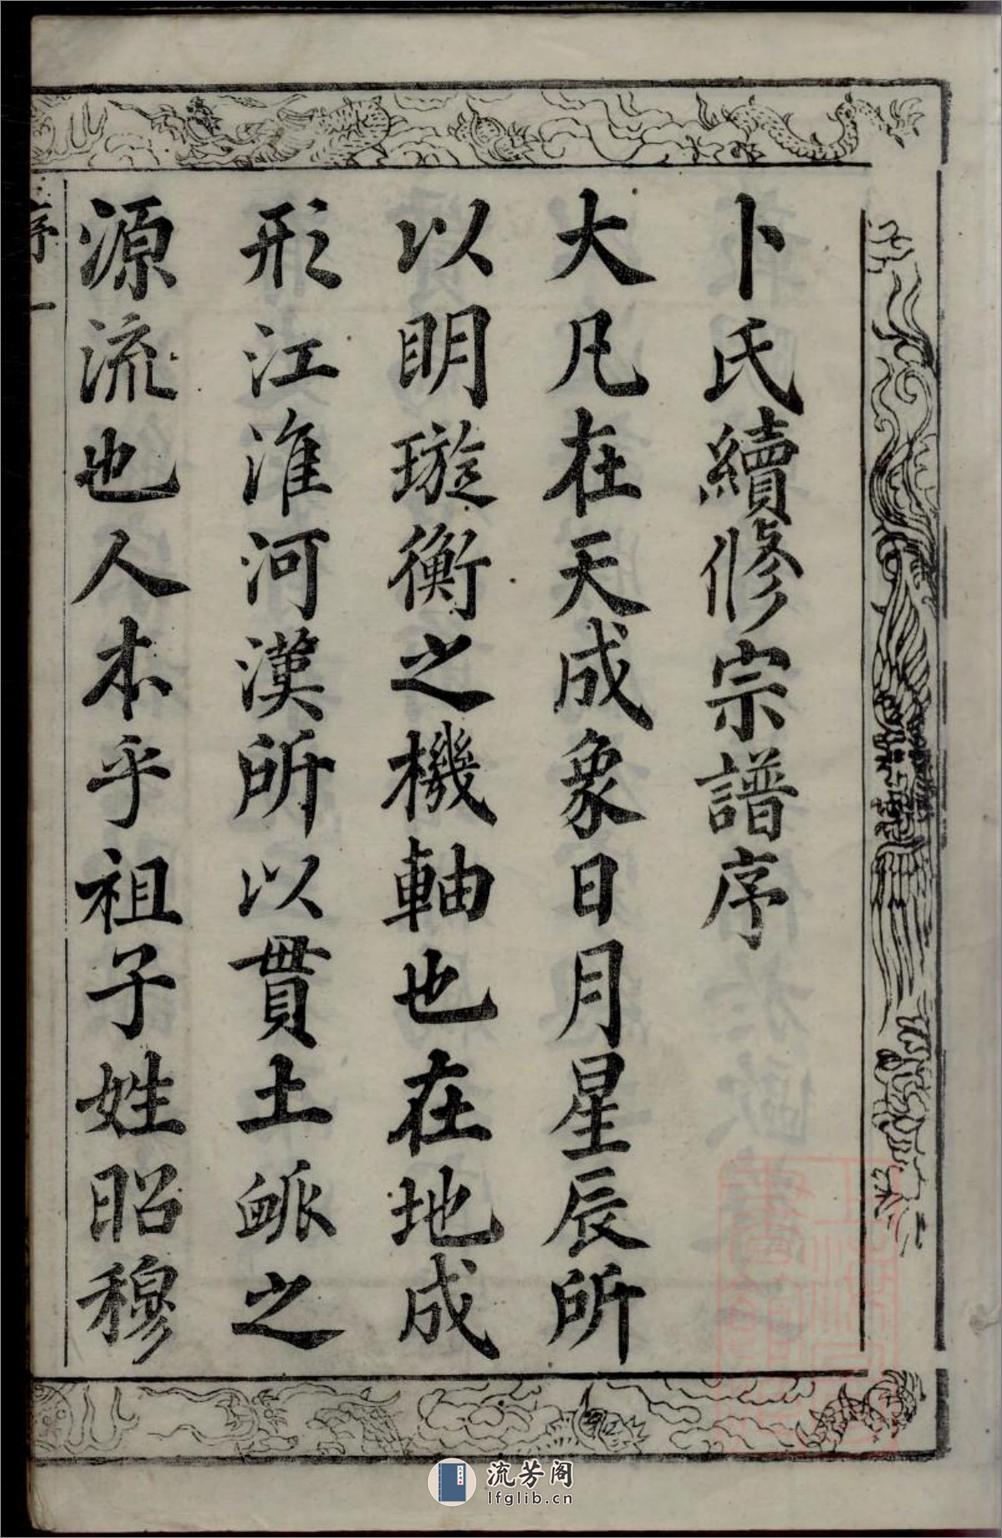 卜氏續修宗譜序
大凡在天成象日月星辰所
以明璇衡之機軸也在地成
形江淮河漢所以貫土脈之
源流也人本乎祖子姓昭穆
序 一
流芳阁
lfglib.cn